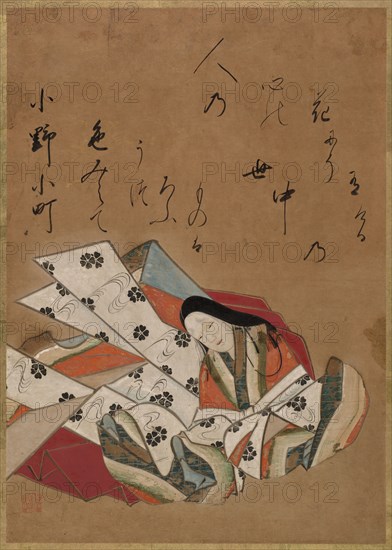 小野小町
色みえて
うつ
ろふ
ものは
世中乃
人乃
心の
花にそ
有ける
PHOTO12